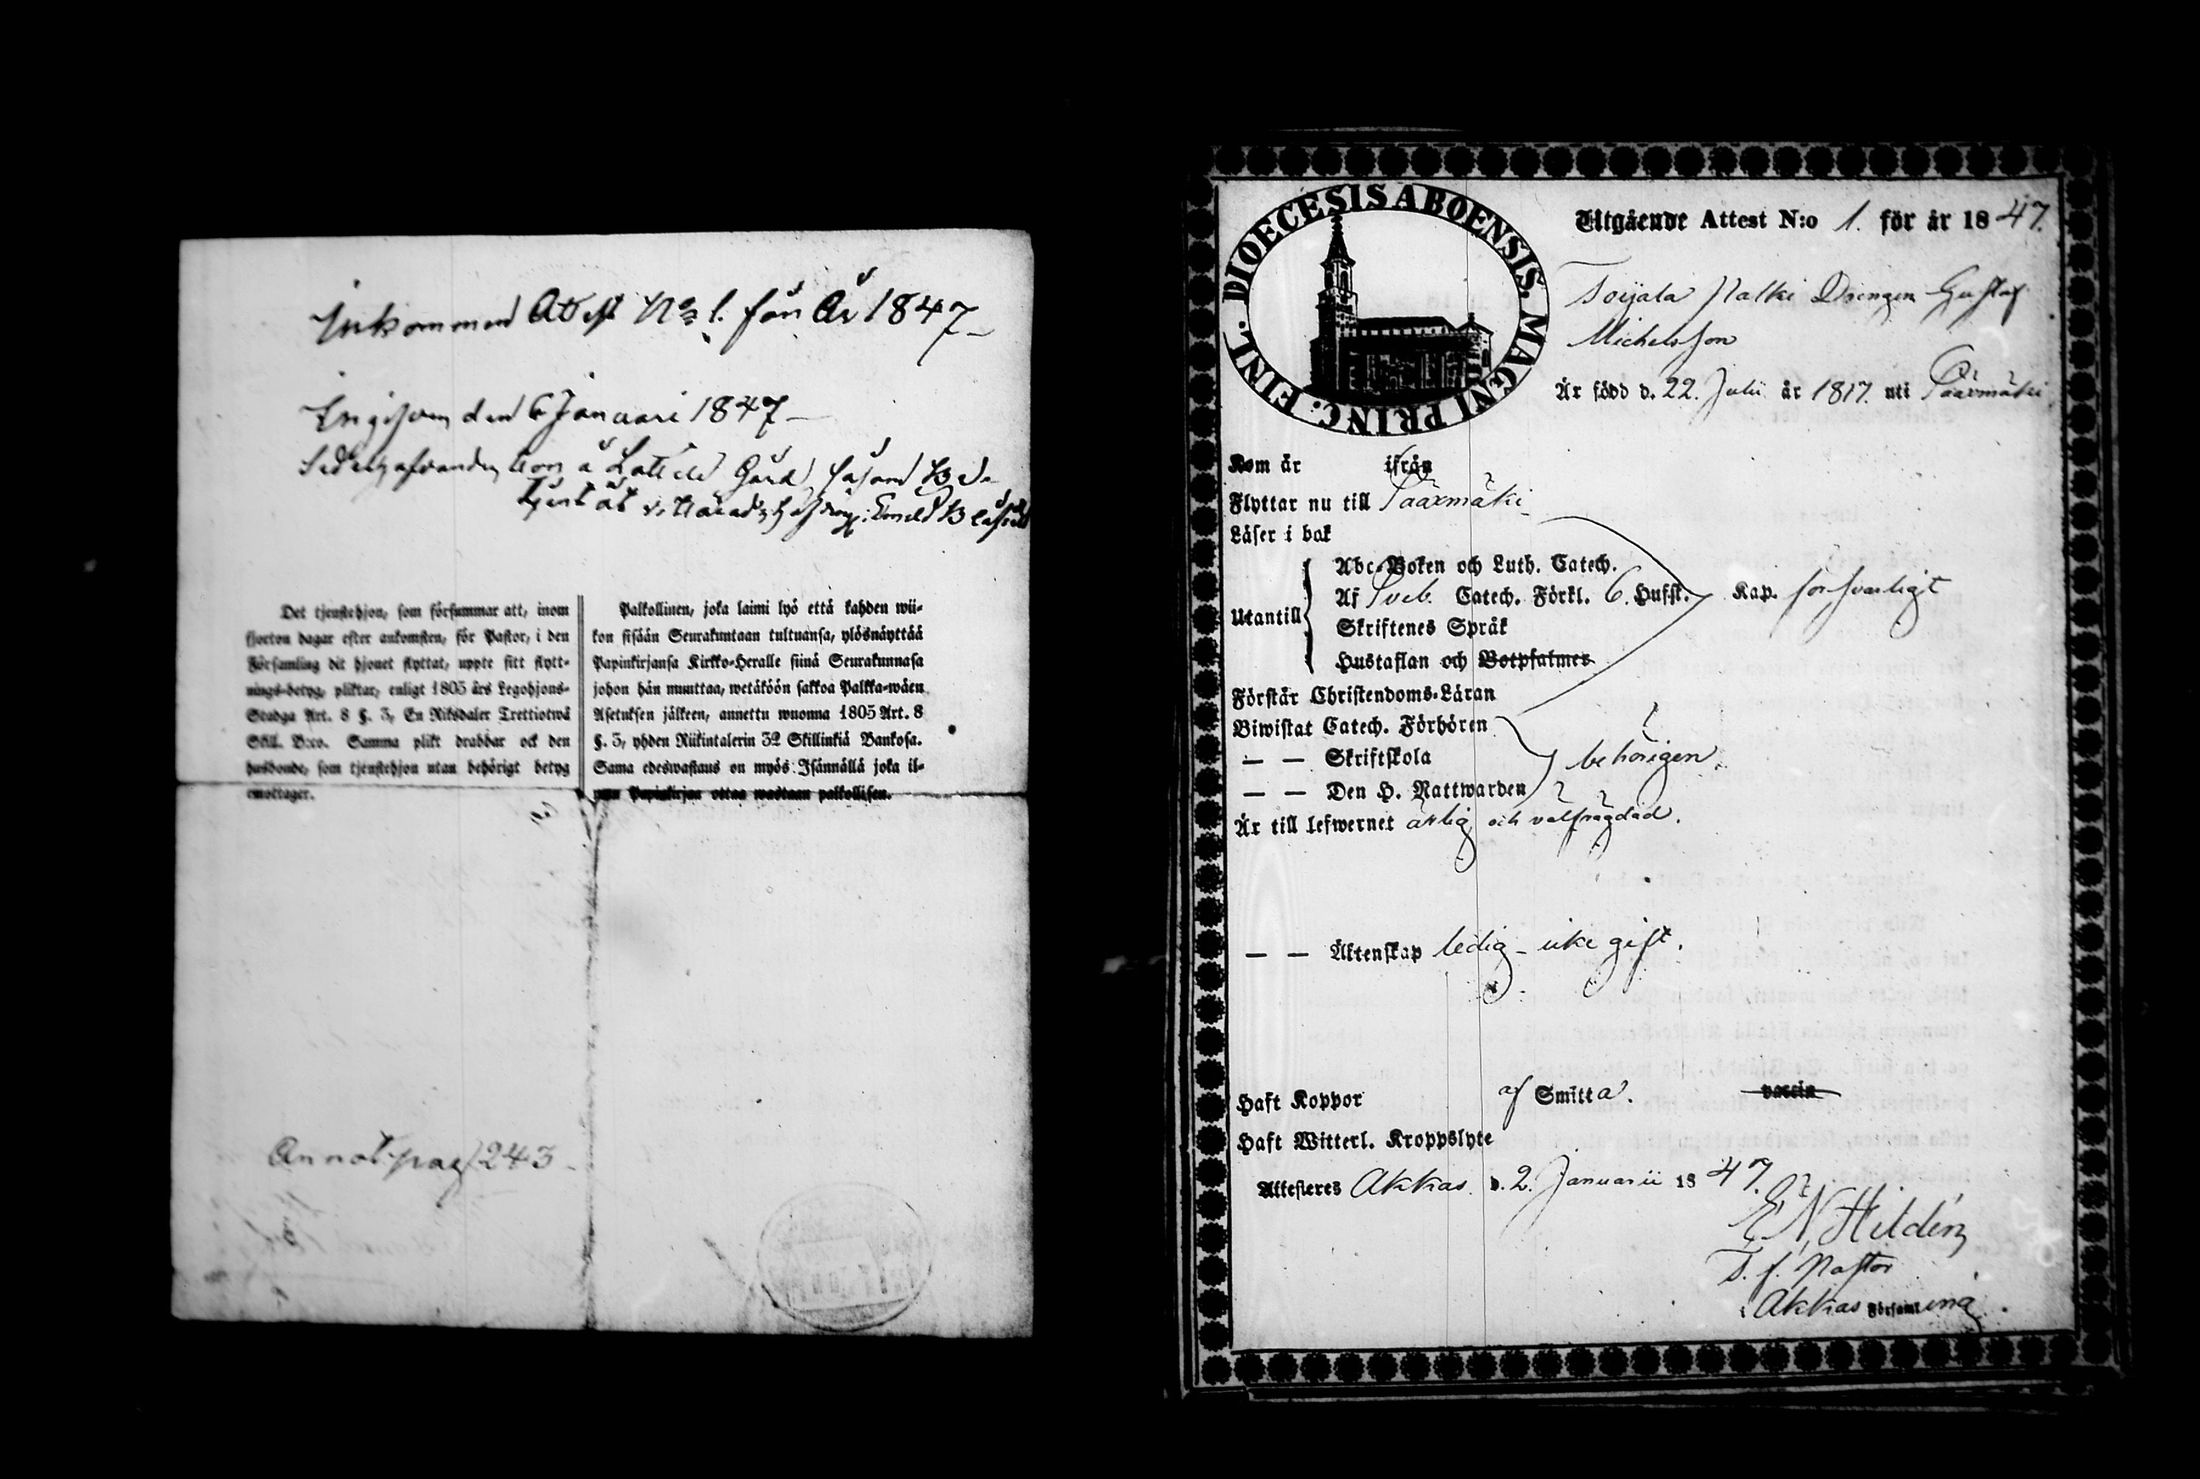 Inkommen Attest No 1. för År 1847
Ingifven den 6 Januari 1847
å Gård, såsom Be-
tjent åt
Det tjenstehjon, som försummar att, inom
fjorton dagar efter ankomsten, för Pastor, i den
Församling dit hjonet flyttat, uppte sitt flytt-
nings-betyg, pliktar, enligt 1805 års Legohjons-
Stadga Art. 8 §. 3, En Riksdaler Trettiotwå
Skill. B:co. Samma plikt drabbar ock den
husbonde, som tjenstehjon utan behörigt betyg
emottager.
Palkollinen, joka laimi lyö että kahden wii-
kon sisään Seurakuntaan tultuansa, ylösnäyttää
Papinkirjansa Kirkko-Heralle siinä Seurakunnasa
johon hän muuttaa, wetäköön sakkoa Palkka-wäen
Asetuksen jälkeen, annettu wuonna 1805 Art. 8
§. 3, yhden Riikintalerin 32 Skillinkiä Bankosa.
Sama edeswastaus on myös Isännällä joka il-
man Papinkirjaa ottaa wastaan palkollisen.
Annot. pag 243
DIOECESIS ABOENSIS. MAGNI PRINC. FINL.
Utgående Attest N:o 1. för år 1847.
Toijala Drengen Gustaf
Michelsson
Är född d. 22. Julii år 1817. uti Pääxmäki
Kom år ifrån
Flyttar nu till Pääxmäki
Läser i bok
Utantill
Abc-Boken och Luth. Catech.
Af Sveb. Catech. Förkl. 6. Hufst. Kap. försvarligt
Skriftenes Språk
Hustaflan och Botpsalmer
Förstår Christendoms-Läran
Biwistat Catech. Förhören
— — Skriftskola behörigen
— — Den H. Nattwarden
Är till lefwernet ärlig och välfrägdad.
— — Äktenskap ledig – icke gift.
Haft Koppor af Smitta. vaccin
Haft Witterl. Kroppslyte
Attesteras Akkas d. 2. Januarii 1847.
E. N. Hildén
T. f. Pastor
i Akkas Församling.